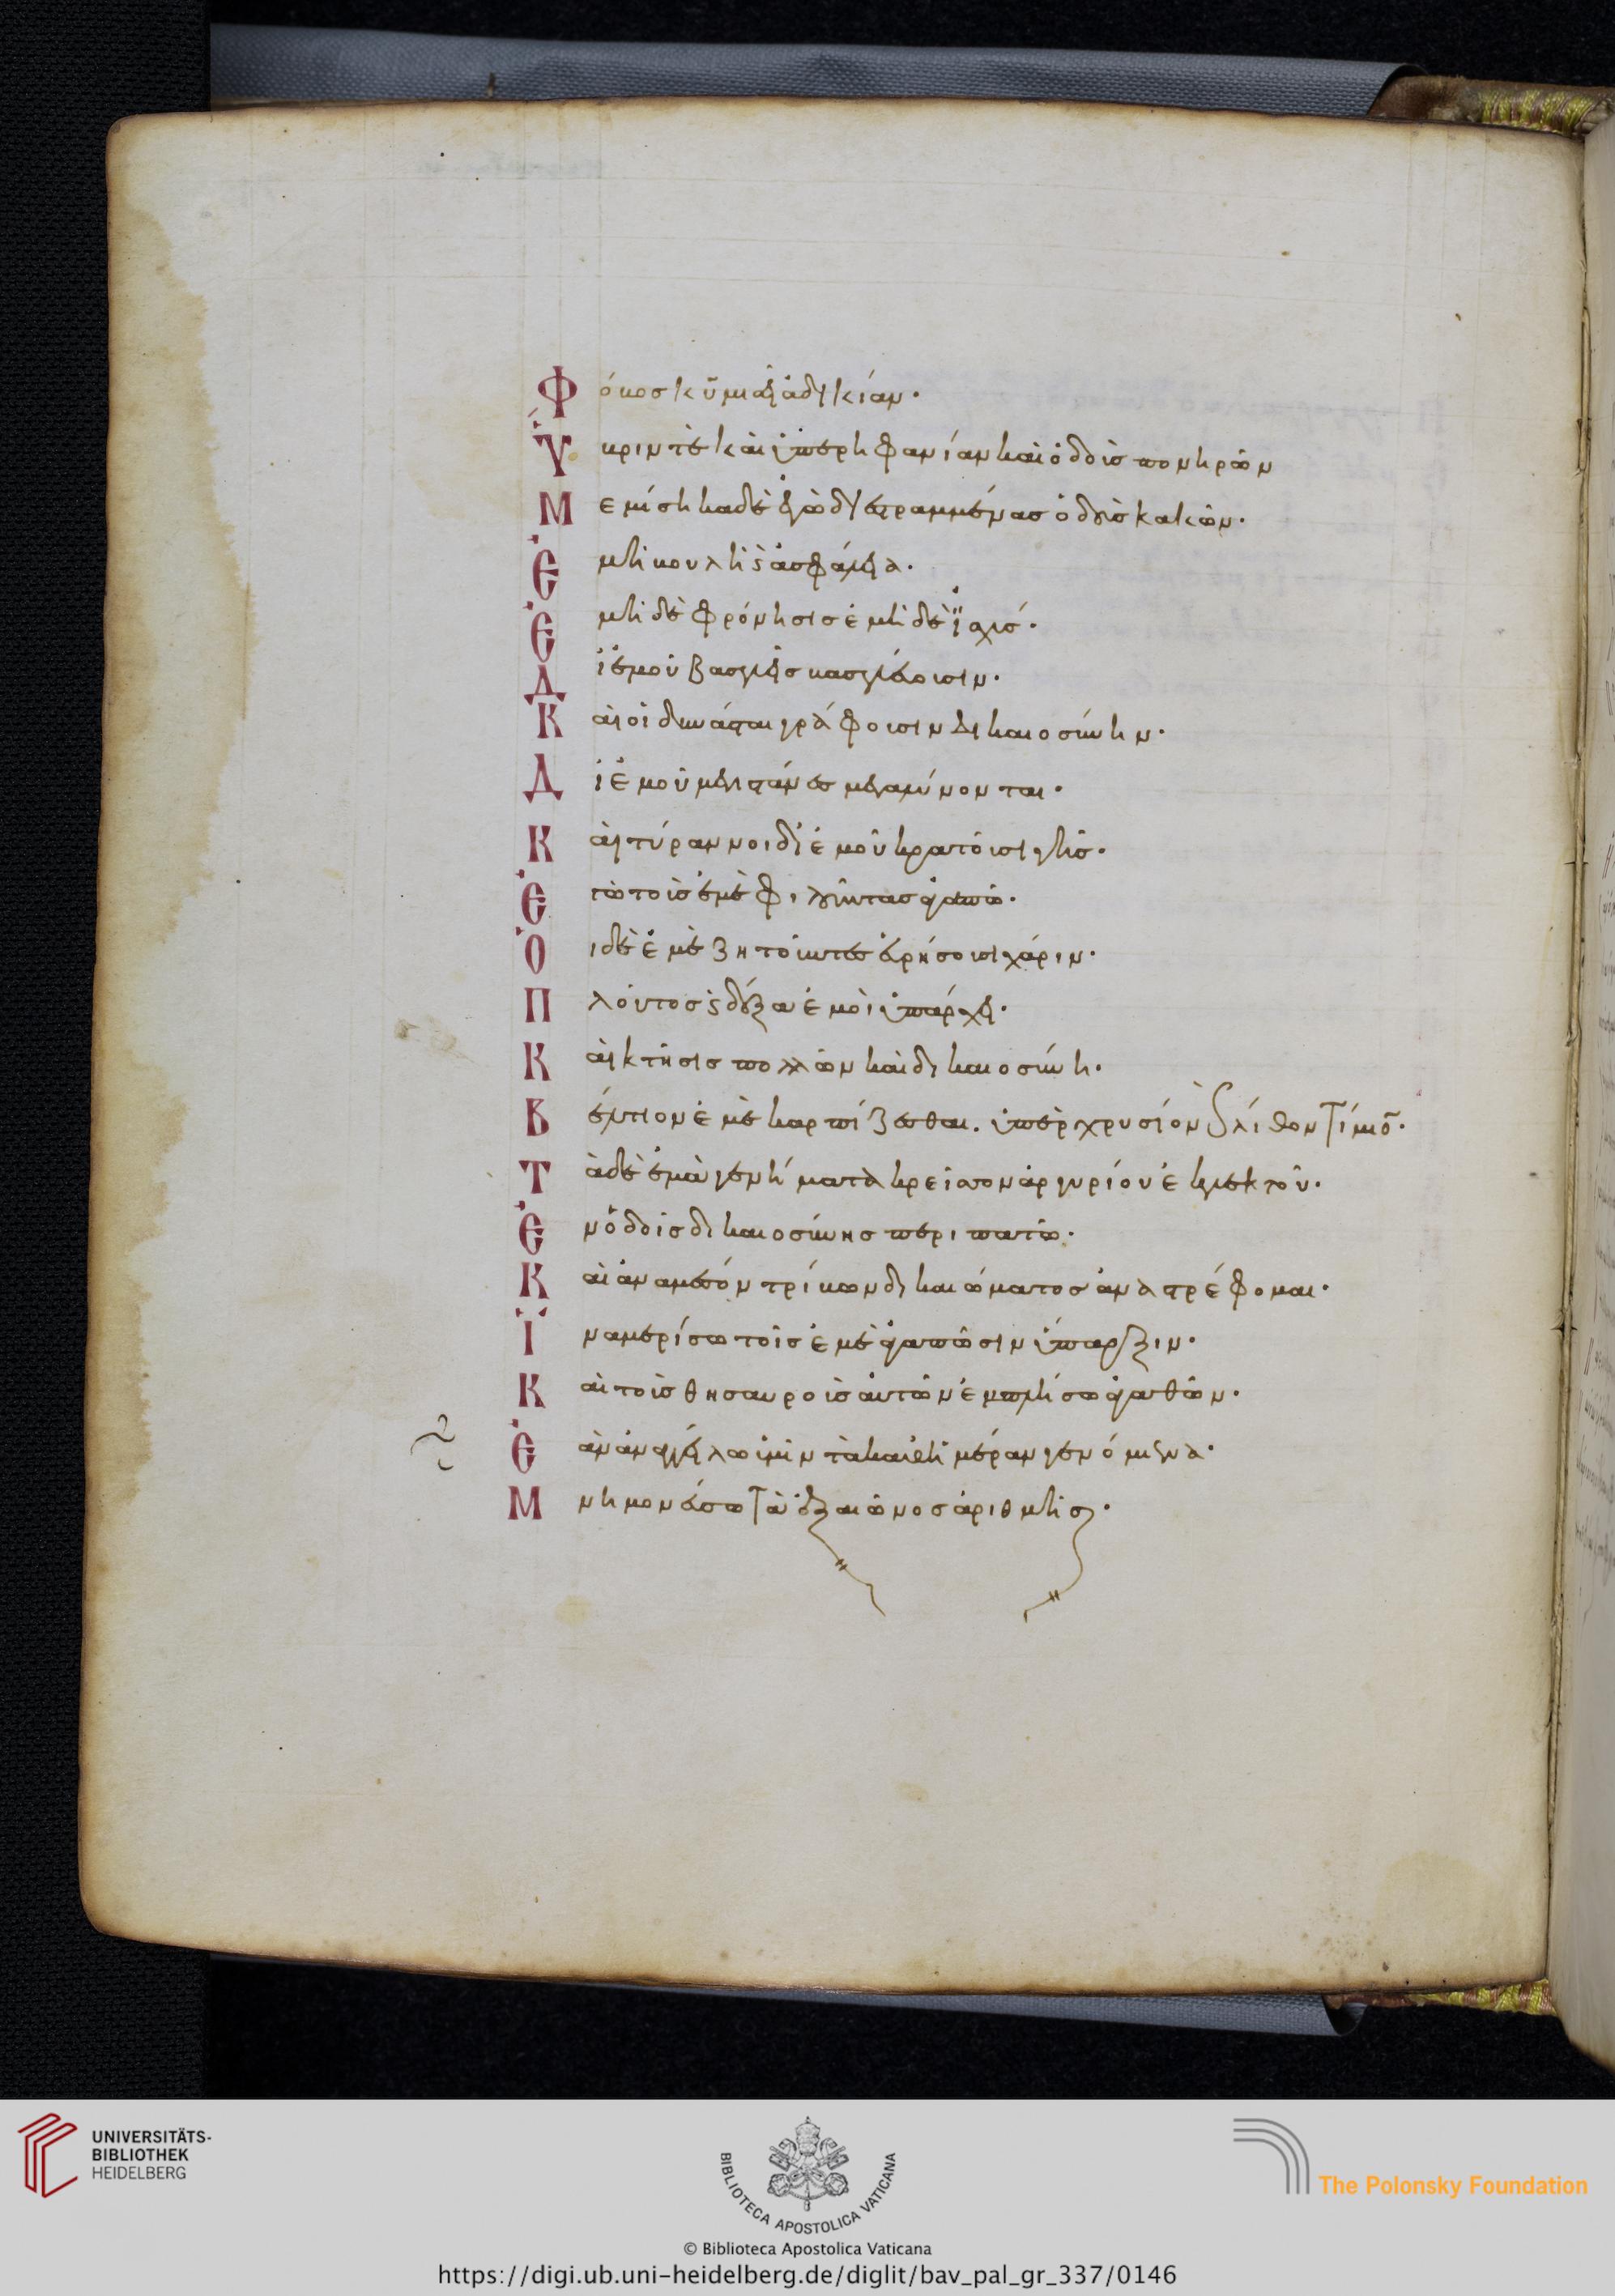 Φόβος κ̅υ̅ μισεῖ ἀδικίαν·
Ὕβριν τὲ καὶ ὑπερηφανίαν καὶ ὁδοὺς πονηρῶν
Μεμίσηκα δὲ ἐγὼ διεστραμμένας ὁδοὺς κακῶν·
Ἐμὴ βουλὴ ϗ ἀσφάλεια·
Ἐμὴ δὲ φρόνησις ἐμὴ δὲ ἰσχύς·
Δι ἐμοῦ βασιλεῖς βασιλεύουσιν·
Και οἱ δυνάσται γράφουσιν δικαιοσύνην·
Δι ἐμοῦ μεγιστάνες μεγαλύνονται·
Καὶ τύραννοι δι ἐμοῦ κρατοῦσι γῆς·
Ἐγὼ τοὺς ἐμὲ φιλοῦντας ἀγαπῶ·
Ὁι δὲ ἐμὲ ζητοῦντες εὑρήσουσι χάριν·
Πλοῦτος ϗ δόξα ἐμοὶ ὑπάρχει·
Καὶ κτῆσις πολλῶν καὶ δικαιοσύνη·
Βέλτιον ἐμὲ καρπίζεσθαι. ὑπὲρ χρυσίον ϗ λίθον τίμιο̅·
Τὰ δὲ ἐμὰ γενήματα κρείσσον ἀργυρίου ἐκλεκτοῦ·
Ἐν ὁδοῖς δικαιοσύνης περιπατῶ·
Καὶ ἀναμεσόν τρίβων δικαιώματος ἀναστρέφομαι·
Ἵνα μερίσω τοῖς ἐμὲ ἀγαπῶσιν ὕπαρξιν·
Καὶ τοὺς θησαυροὺς αὐτῶν ἐμπλήσω ἀγαθῶν·
Ἐὰν ἀναγγέλλω ὑμῖν τὰ καθ ἡμέραν γενόμενα·
Μνημονεύσω τὰ ἐξ αἰῶνος ἀριθμῆσαι·
UNIVERSITÄTS-
BIBLIOTHEK
HEIDELBERG
BIBLIOTECA APOSTOLICA VATICANA
The Polonsky Foundation
© Biblioteca Apostolica Vaticana
https://digi.ub.uni-heidelberg.de/diglit/bav_pal_gr_337/0146